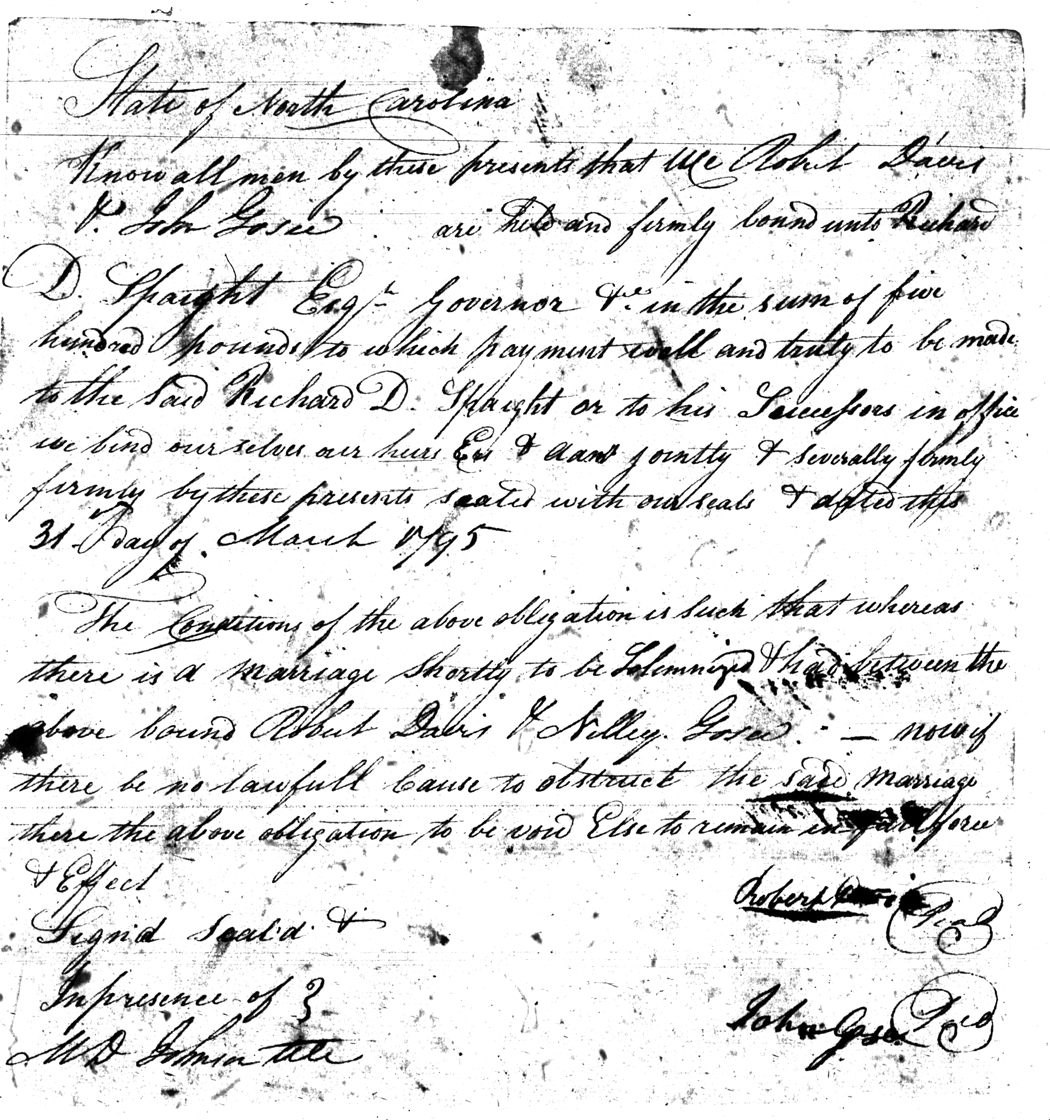 State of North Carolina
Know all men by these presents that We Robert Davis
& John Gosee are held and firmly bound unto Richard
D. Spaight Esqr Governor &c. in the sum of five
hundred pounds to which payment well and truly to be made
to the said Richard D. Spaight or to his Successors in office
we bind ourselves our heirs Exs & Adms jointly & severally firmly
firmly by these presents sealed with our seals & dated this
31st day of March 1795
The Conditions of the above obligation is such that whereas
there is a marriage shortly to be Solemnized & had between the
above bound Robert Davis & Nelley Gosee — now if
there be no lawfull Cause to obstruct the said marriage
there the above obligation to be void Else to remain in full force
& Effect
Signd Seal'd &
In presence of
M D Johnson
Robert Davis Seal
John Gose Seal